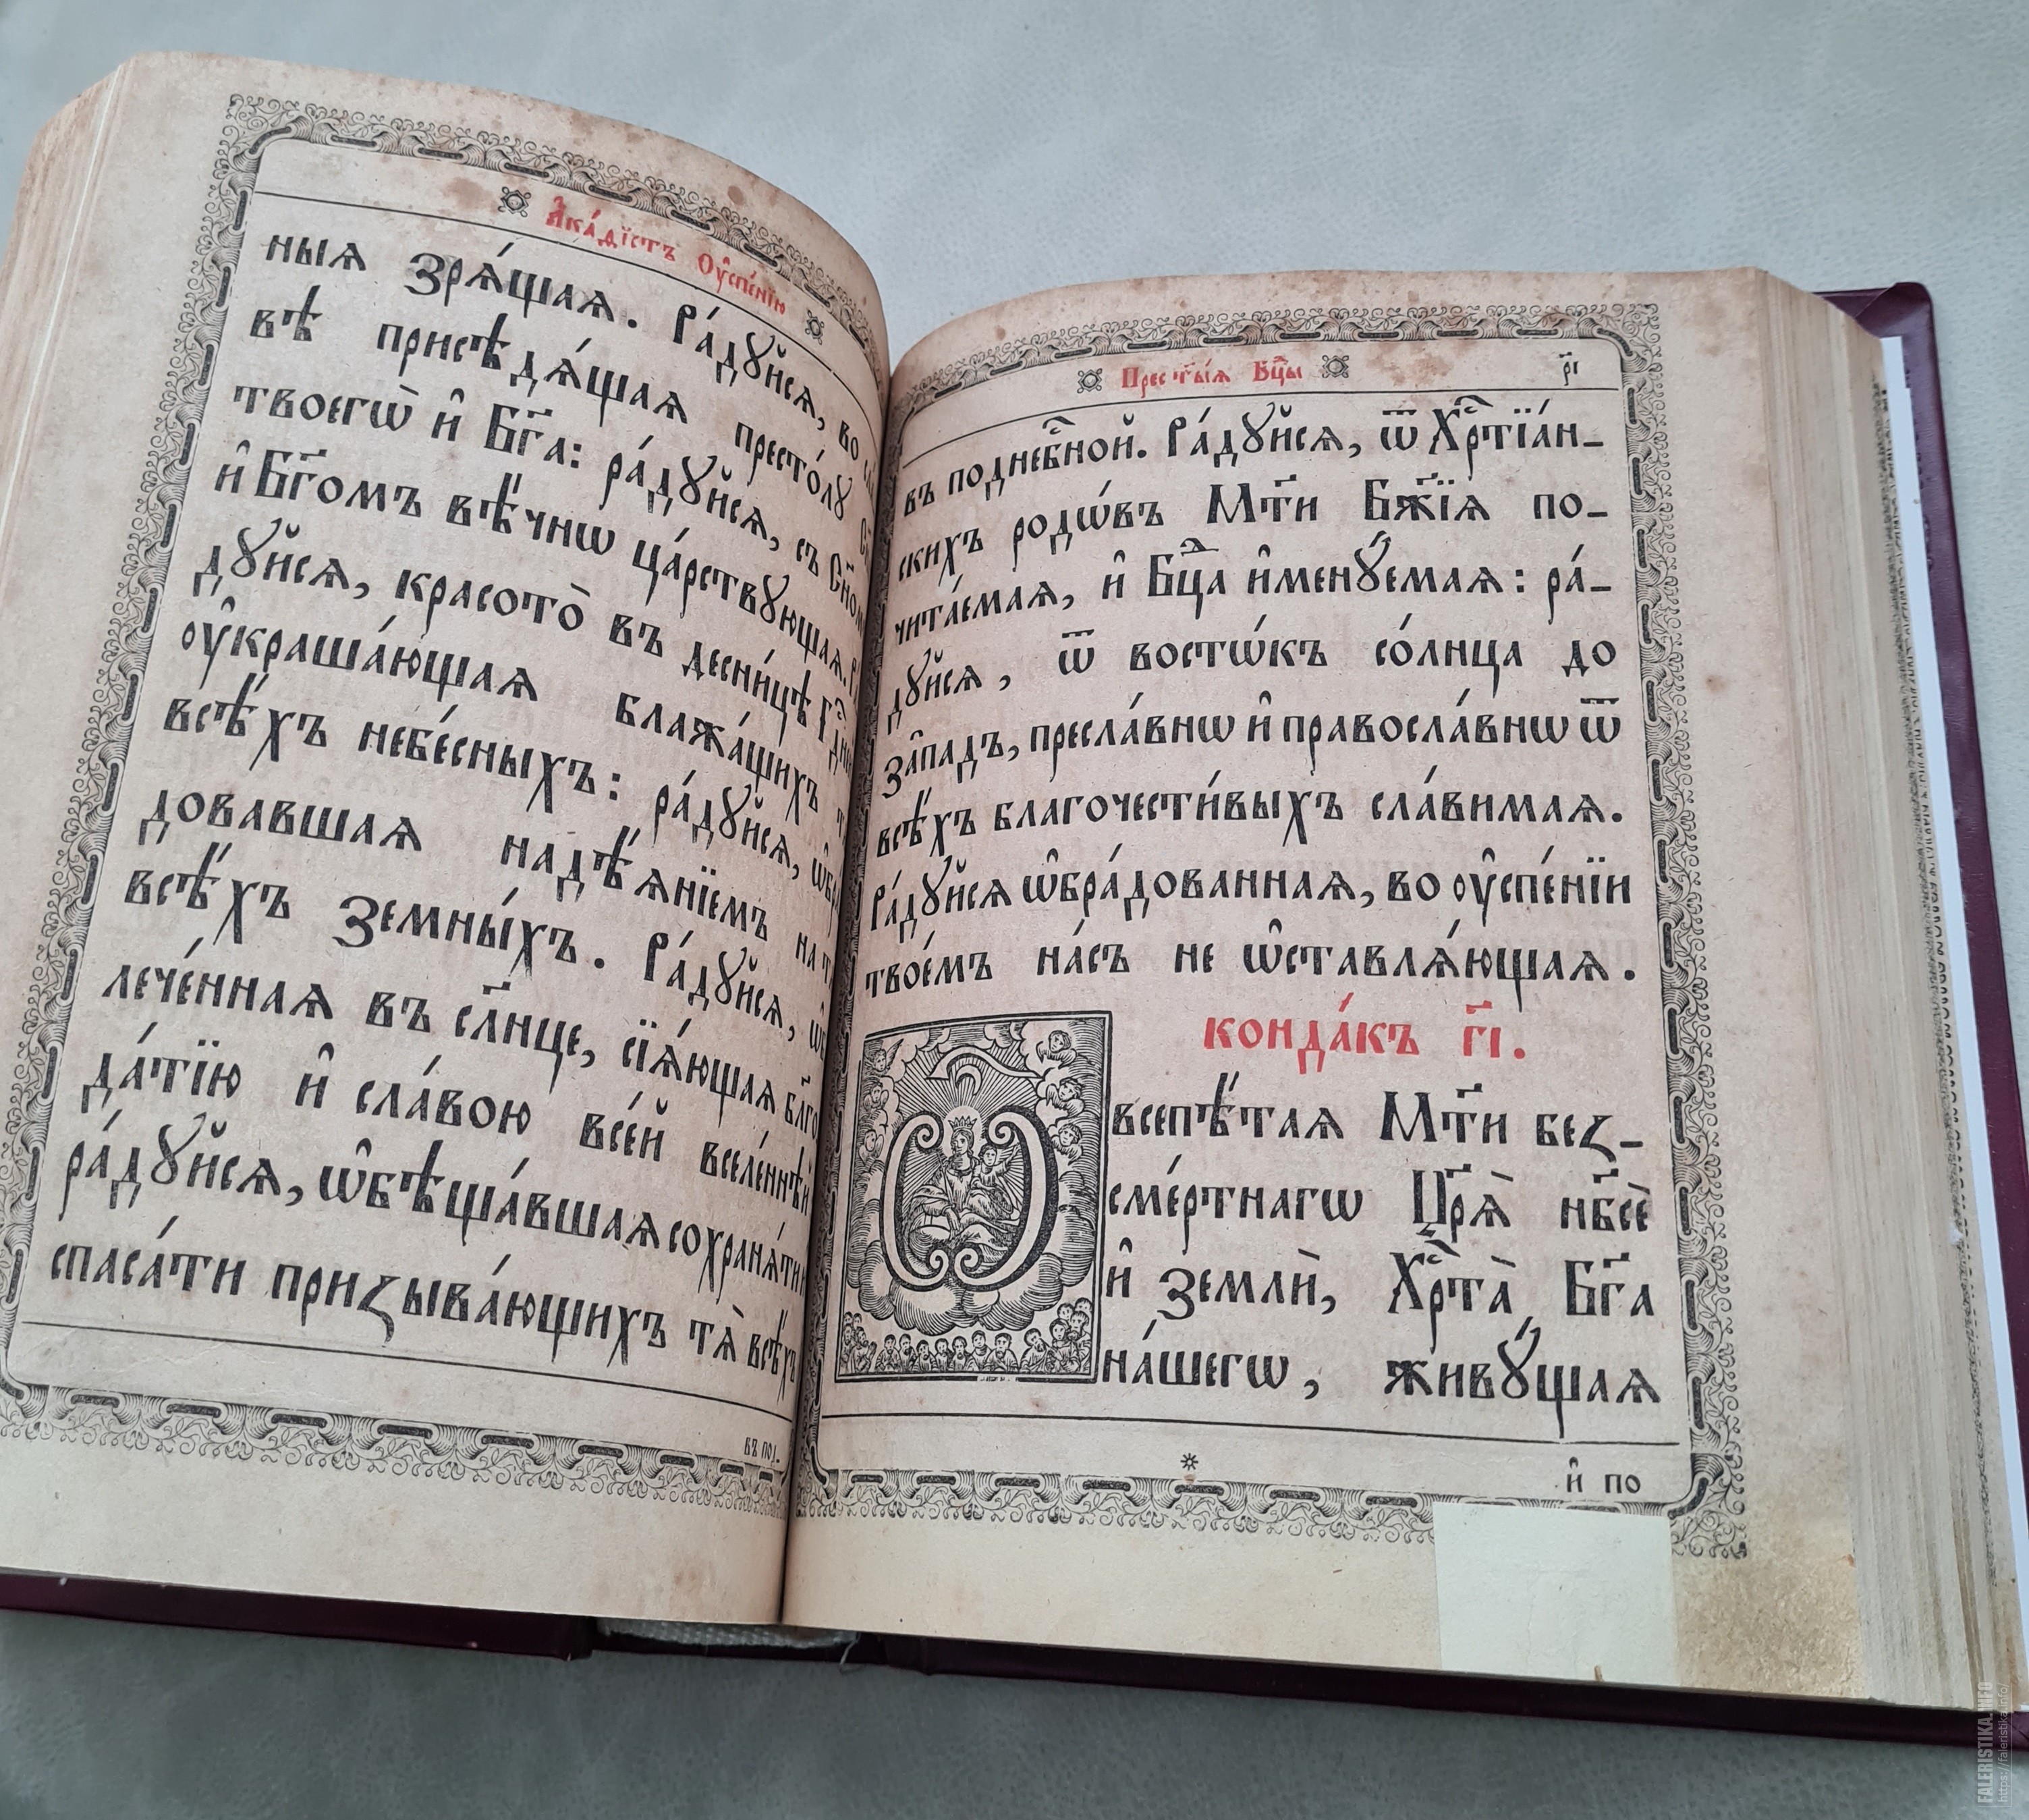 А҆ка́ѳїстъ Оу҆спе́нїю
ныѧ зрѧ́щаѧ. Ра́дꙋйсѧ, во
вѣ присѣдѧ́щаѧ престо́лꙋ
твоегѡ̀ и҆ Бг҃а: ра́дꙋйсѧ, съ Сн҃ом
и҆ Бг҃омъ вѣ́чнѡ ца́рствꙋющаѧ.
дꙋйсѧ, красото̀ въ десни́цѣ
оу҆краша́ющаѧ блажа́щихъ
всѣ́хъ небе́сныхъ: ра́дꙋйсѧ,
довавшаѧ надѣ́ѧнїемъ на
всѣ́хъ земны́хъ. Ра́дꙋйсѧ,
лече́ннаѧ въ сл҃нце, сїѧ́ющаѧ бл҃го
да́тїю и҆ сла́вою все́й вселе́ннѣй
ра́дꙋйсѧ, ѡ҆бѣща́вшаѧ сохранѧ́ти
спаса́ти призыва́ющихъ тѧ̀ всѣ́хъ
въ под.
Прест҃ы́ѧ Бцⷣы
р҃і
въ поднебⷭ҇ной. Ра́дꙋйсѧ, ѿ Хрⷭ҇тїа́н-
скихъ родѡ́въ Мт҃и Бж҃їѧ по-
чита́емаѧ, и҆ Бцⷣа и҆менꙋ́емаѧ: ра́-
дꙋйсѧ, ѿ восто́къ со́лнца до
за̑падъ, пресла́внѡ и҆ правосла́внѡ ѿ
всѣ́хъ благочести́выхъ сла́вимаѧ.
Ра́дꙋйсѧ ѡ҆бра́дованнаѧ, во оу҆спе́нїи
твое́мъ на́съ не ѡ҆ставлѧ́ющаѧ.
конда́къ г҃і.
Ѡ всепѣ́таѧ Мт҃и без-
сме́ртнагѡ Цр҃ѧ̀ нб҃сѐ
и҆ землѝ, Хрⷭ҇та̀ Бг҃а
на́шегѡ, живꙋ́щаѧ
и҆ по
FALERISTIKA.INFO
https://faleristika.info/